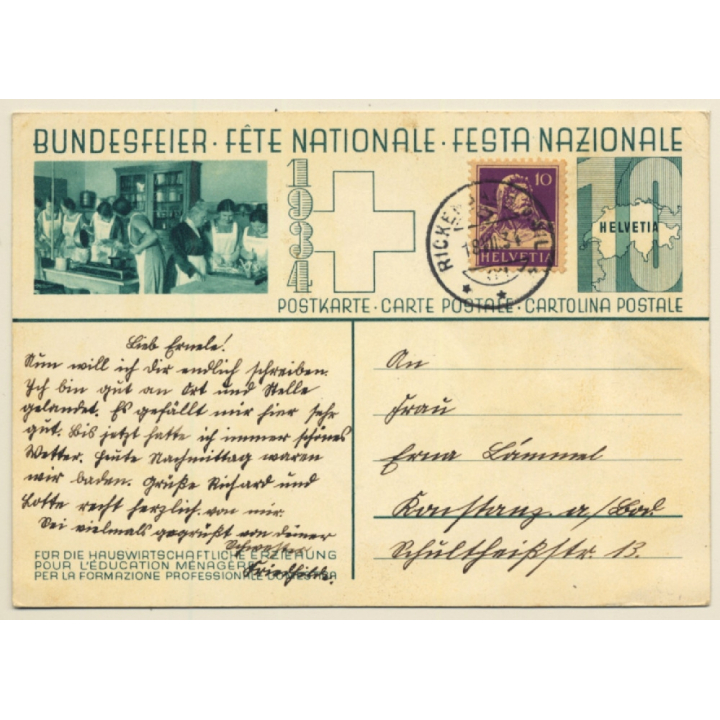 BUNDESFEIER · FÊTE NATIONALE · FESTA NAZIONALE
1934
10
HELVETIA
10
HELVETIA
POSTKARTE · CARTE POSTALE · CARTOLINA POSTALE
Lieb Ernele!
Nun will ich dir endlich schreiben.
Ich bin gut an Ort und Stelle
gelandet. Es gefällt mir hier sehr
gut. Bis jetzt hatte ich immer schönes
Wetter. Heute Nachmittag waren
wir baden. Grüße Richard und
Lotte recht herzlich von mir.
Sei vielmals gegrüßt von deiner
Schwester
Friedhilde.
FÜR DIE HAUSWIRTSCHAFTLICHE ERZIEHUNG
POUR L'ÉDUCATION MÉNAGÈRE
PER LA FORMAZIONE PROFESSIONALE DOMESTICA
An
Frau
Erna Lämmel
Konstanz a/Bod
Schultheißstr. 13.